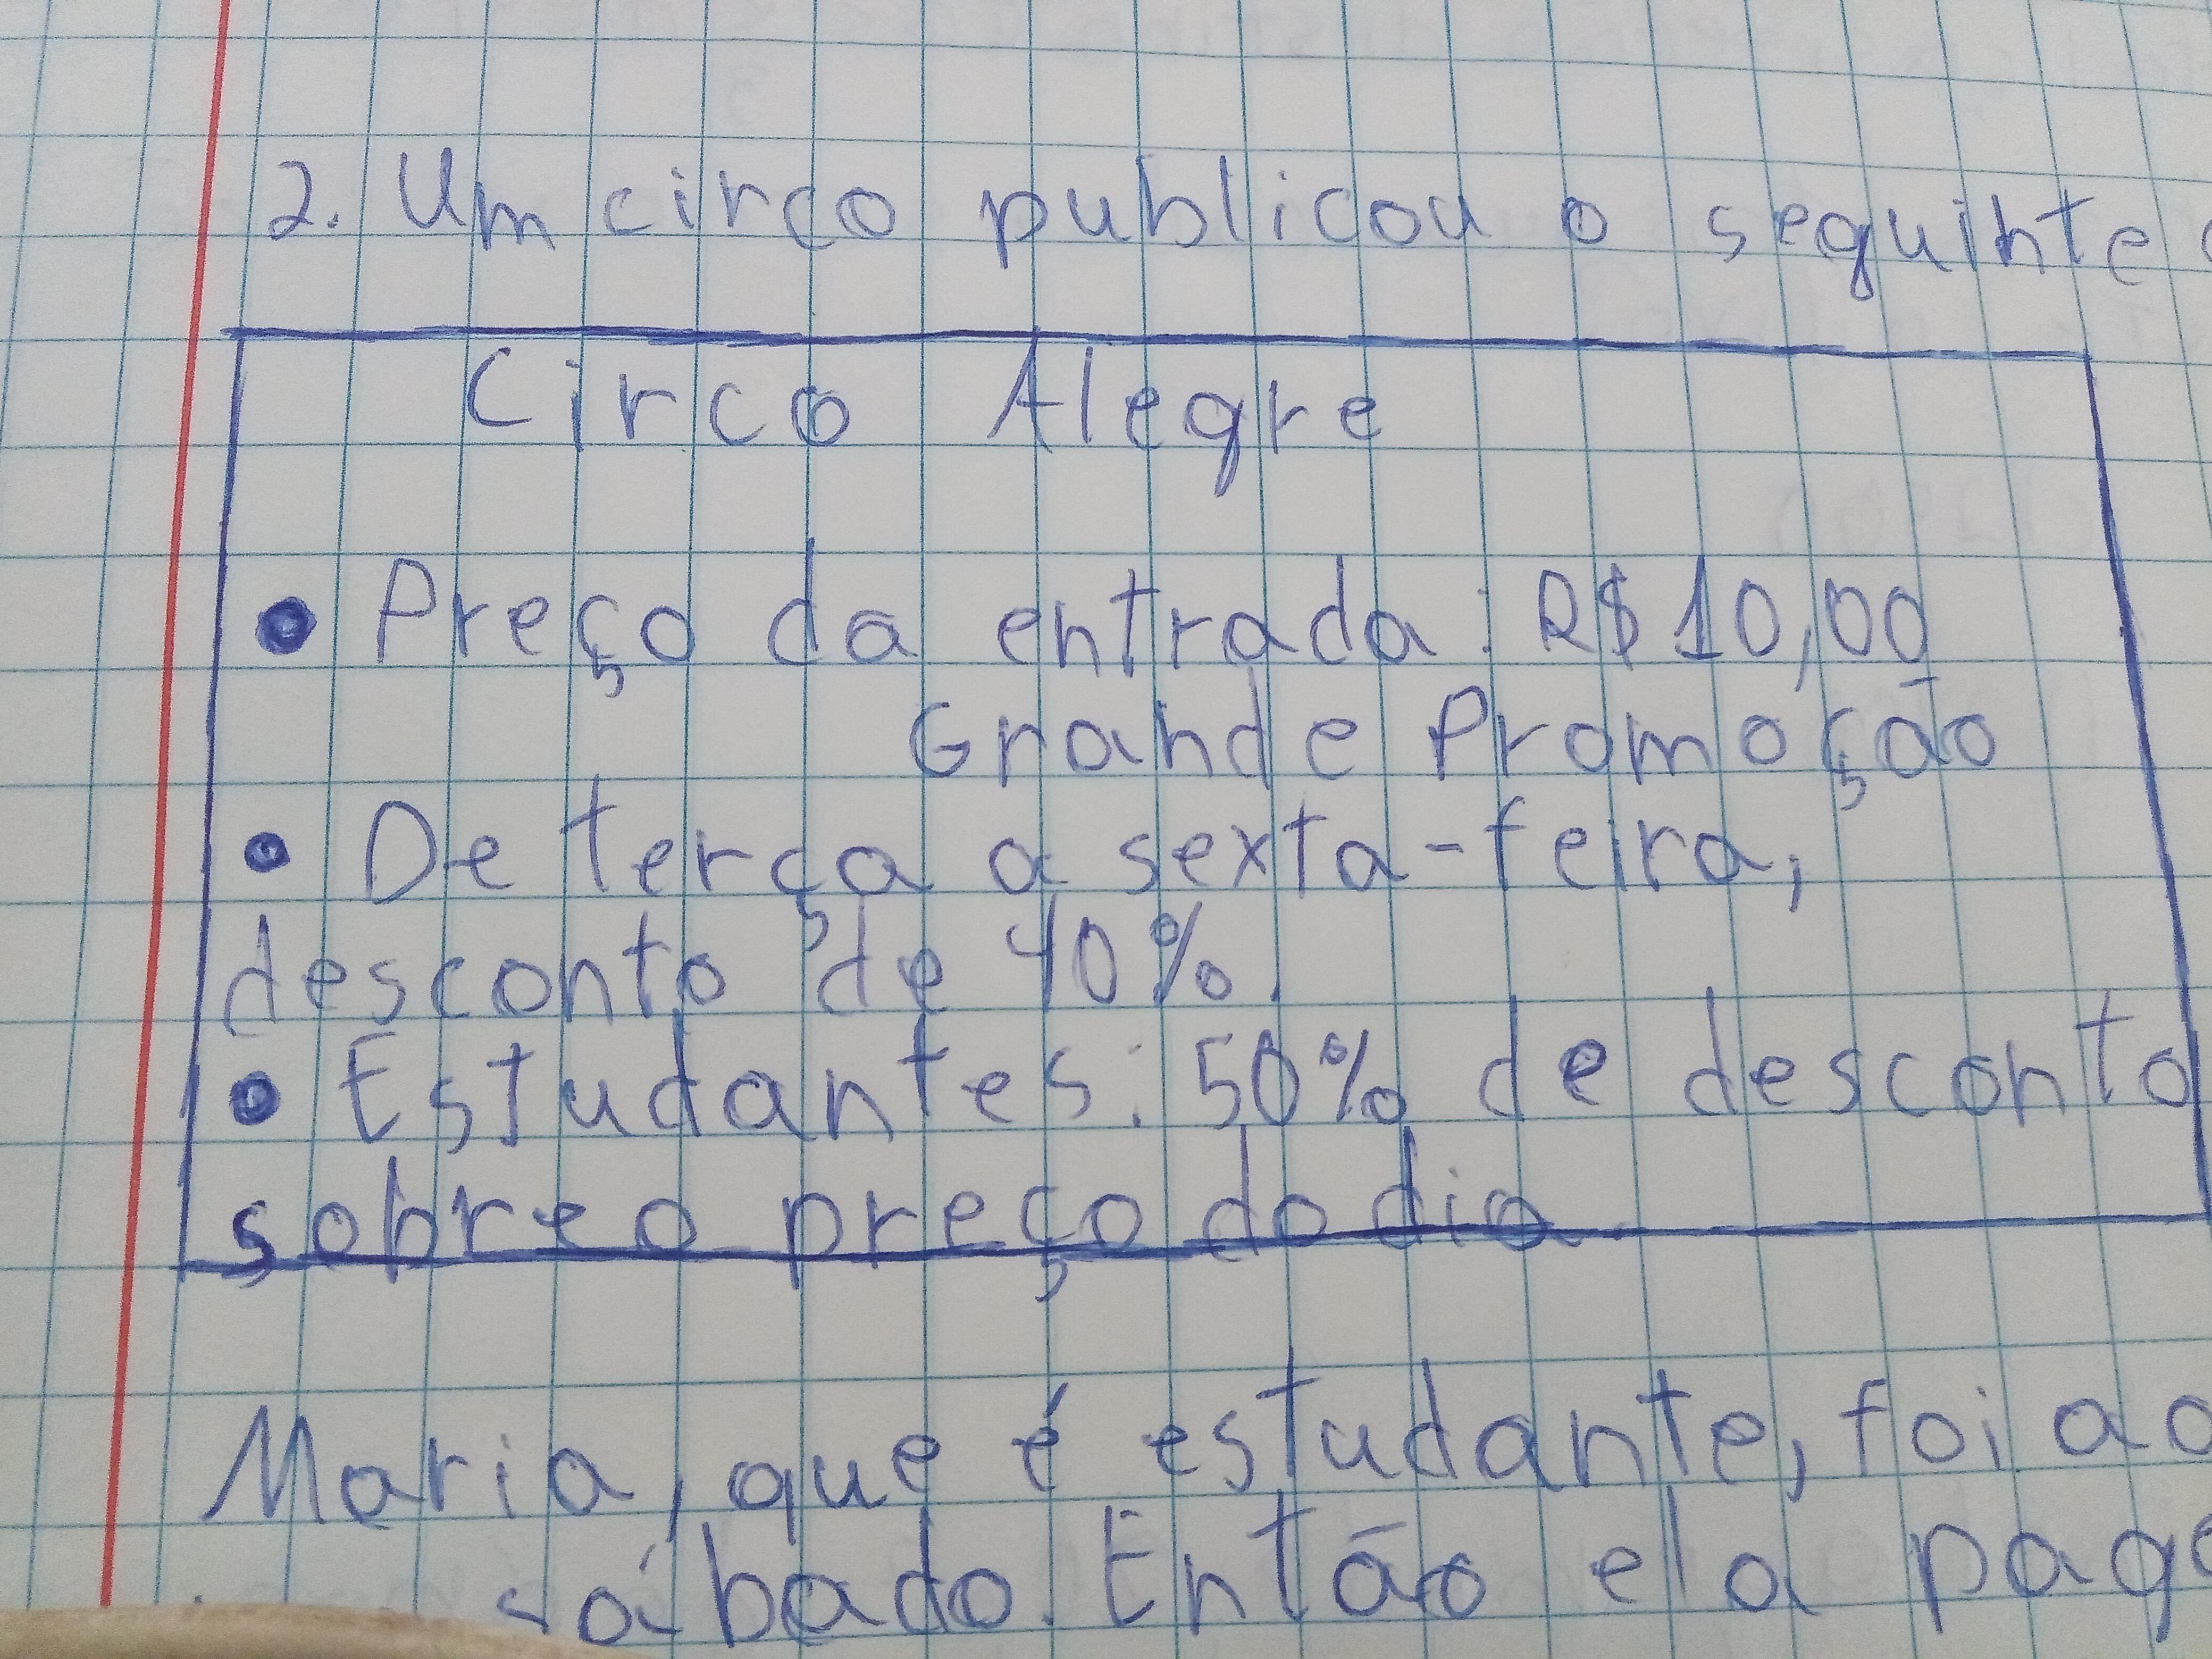 2. Um circo publicou o seguinte
Circo Alegre
• Preço da entrada: R$10,00
Grande Promoção
• De terça a sexta-feira,
desconto de 40%.
• Estudantes: 50% de desconto
sobre o preço do dia.
Maria, que é estudante, foi ao
sábado. Então ela